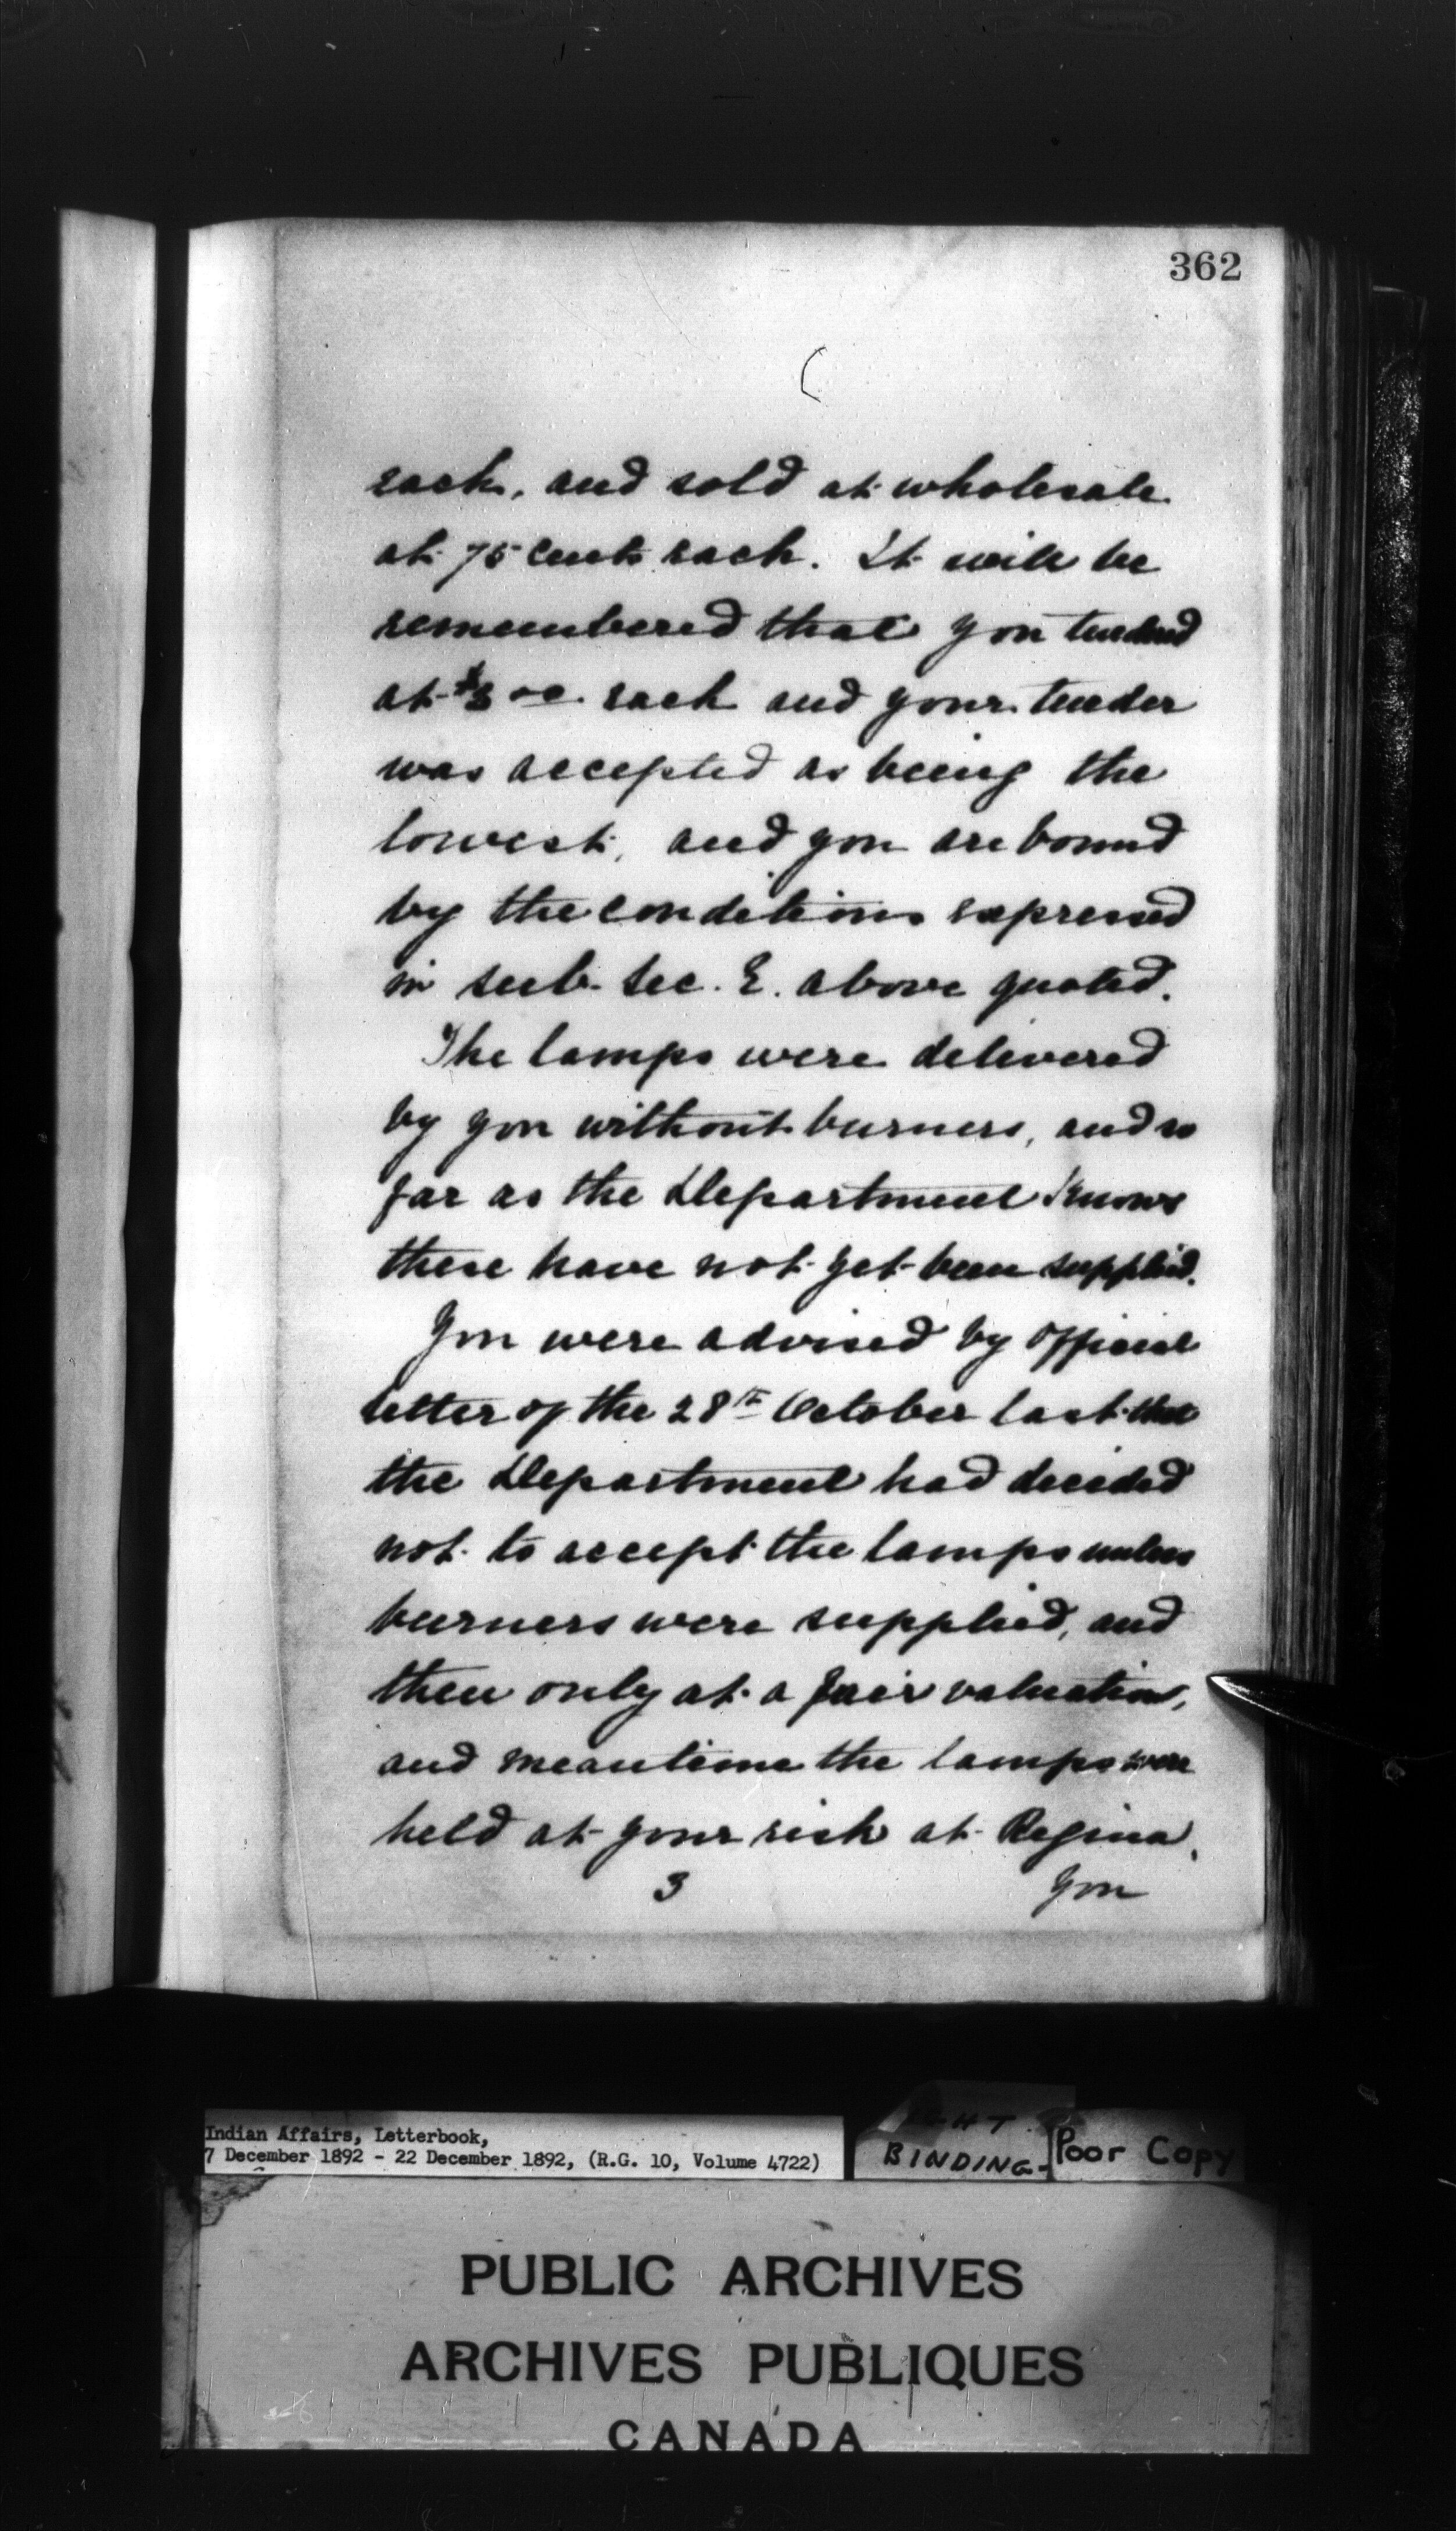 362
each, and sold at wholesale
at 75 cents each. It will be
remembered that you tendered
at $3 00 each and your tender
was accepted as being the
lowest, and you are bound
by the conditions expressed
in sub. sec. E. above quoted.
The lamps were delivered
by you without burners, and so
far as the Department knows
these have not yet been supplied.
You were advised by official
letter of the 28th October last that
the Department had decided
not to accept the lamps unless
burners were supplied, and
then only at a fair valuation,
and meantime the lamps were
held at your risk at Regina.
3 You
Indian Affairs, Letterbook,
7 December 1892 - 22 December 1892, (R.G. 10, Volume 4722)
BINDING-
Poor Copy
PUBLIC ARCHIVES
ARCHIVES PUBLIQUES
CANADA